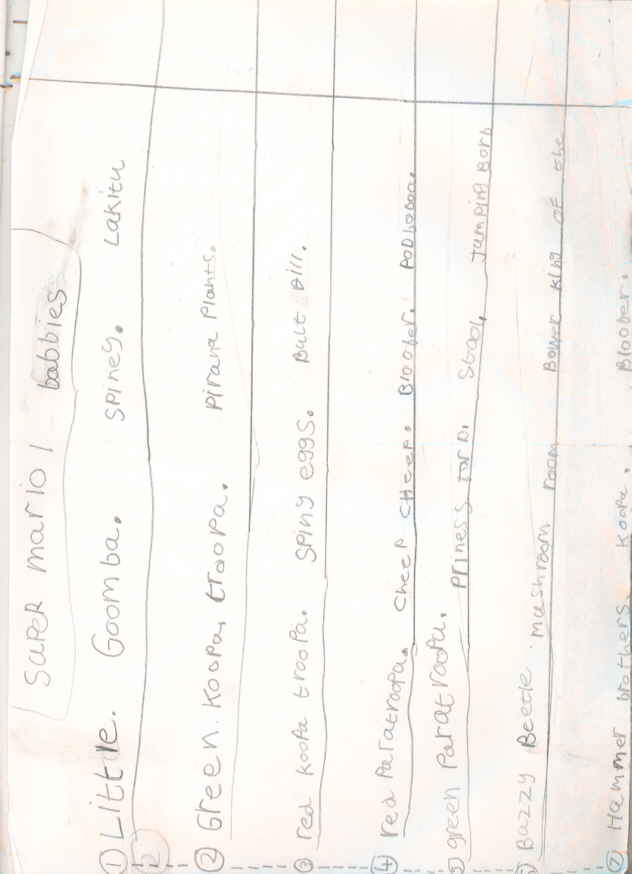 SUPER mario 1 babbies
① Little. Goomba. Spiney. Lakitu
② Green. Koopa, troopa. Pirana Plants.
③ red Koopa troopa. Spiny eggs. Bult Bill.
④ red Paratroopa. Cheep Cheep. Bloober. Podoboa.
⑤ green Paratroopa. Priness Stool, Jumping Born
Buzzy Beetle mushroom room Bower King of the
⑦ Hammer brothers. Koopa. Bloober.